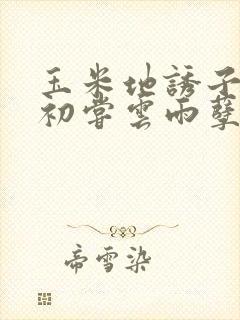 玉米地誘子
初嘗雲雨孽
帝雪染